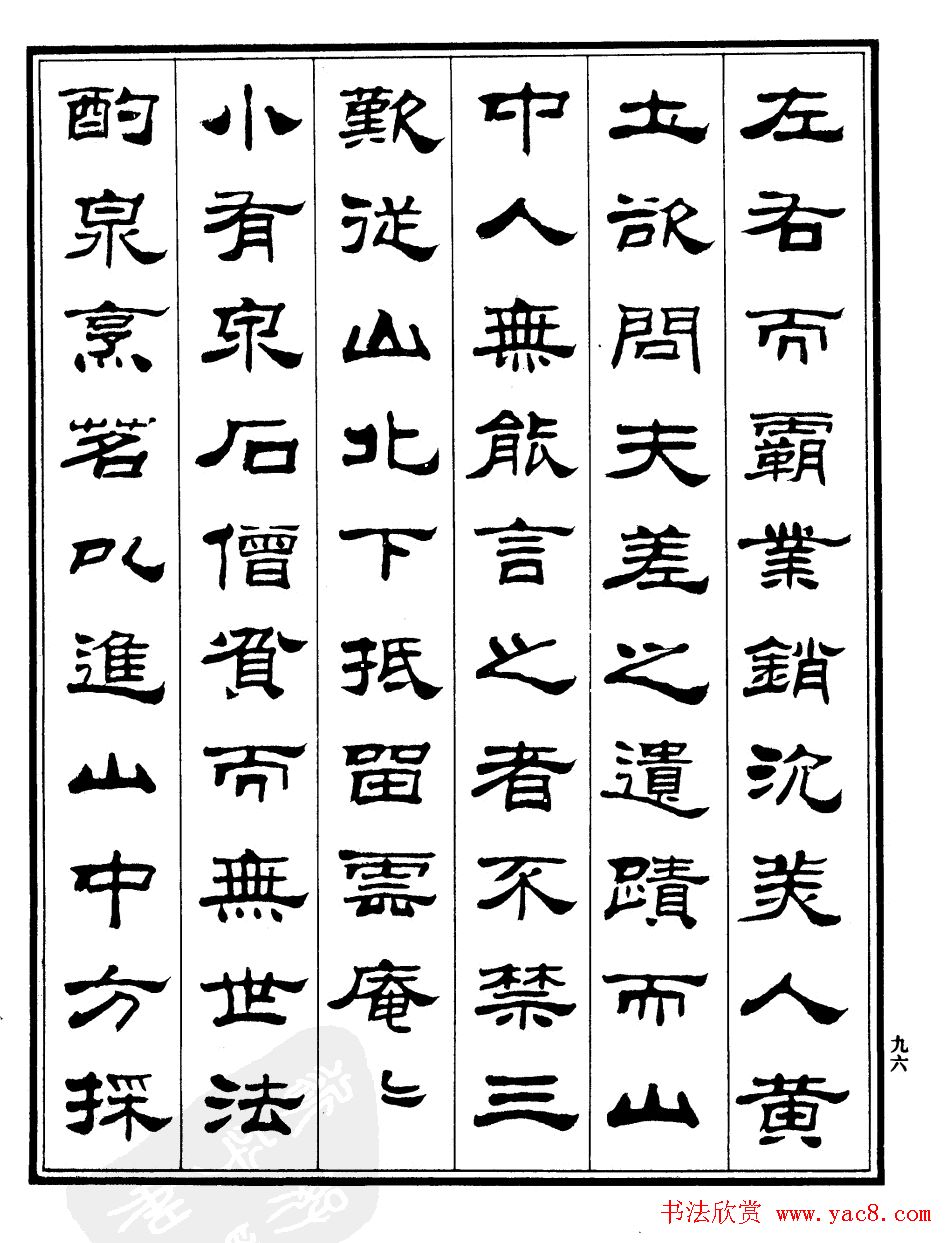 左右而霸業銷沉美人黃
土欲問夫差之遺蹟而山
中人無能言之者不禁三
歎從山北下抵留雲庵々
小有泉石僧貧而無世法
酌泉烹茗以進山中方採
九六
书法欣赏 www.yac8.com